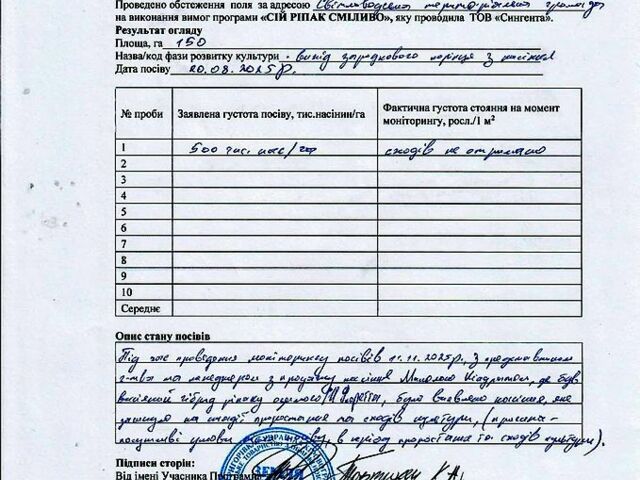 Проведено обстеження поля за адресою Світловодська територіальна громада
на виконання вимог програми «СІЙ РІПАК СМІЛИВО», яку проводила ТОВ «Сингента».
Результат огляду
Площа, га 150
Назва/код фази розвитку культури - вихід зародкового корінця з насіння
Дата посіву 20.08.2025р.
№ проби Заявлена густота посіву, тис.насінин/га Фактична густота стояння на момент
моніторингу, росл./1 м²
1 500 тис. нас/га сходів не отримано
2
3
4
5
6
7
8
9
10
Середнє
Опис стану посівів
Під час проведення моніторингу посівів 11.11.2025р., з представником
та менеджером з продажу насіння Миколою, де був
висіяний гібрид ріпаку озимого, було виявлено насіння, яке
на стадії проростання та сходів культури, (
умови, в період проростання та сходів культури).
Підписи сторін:
Від імені Учасника Програми